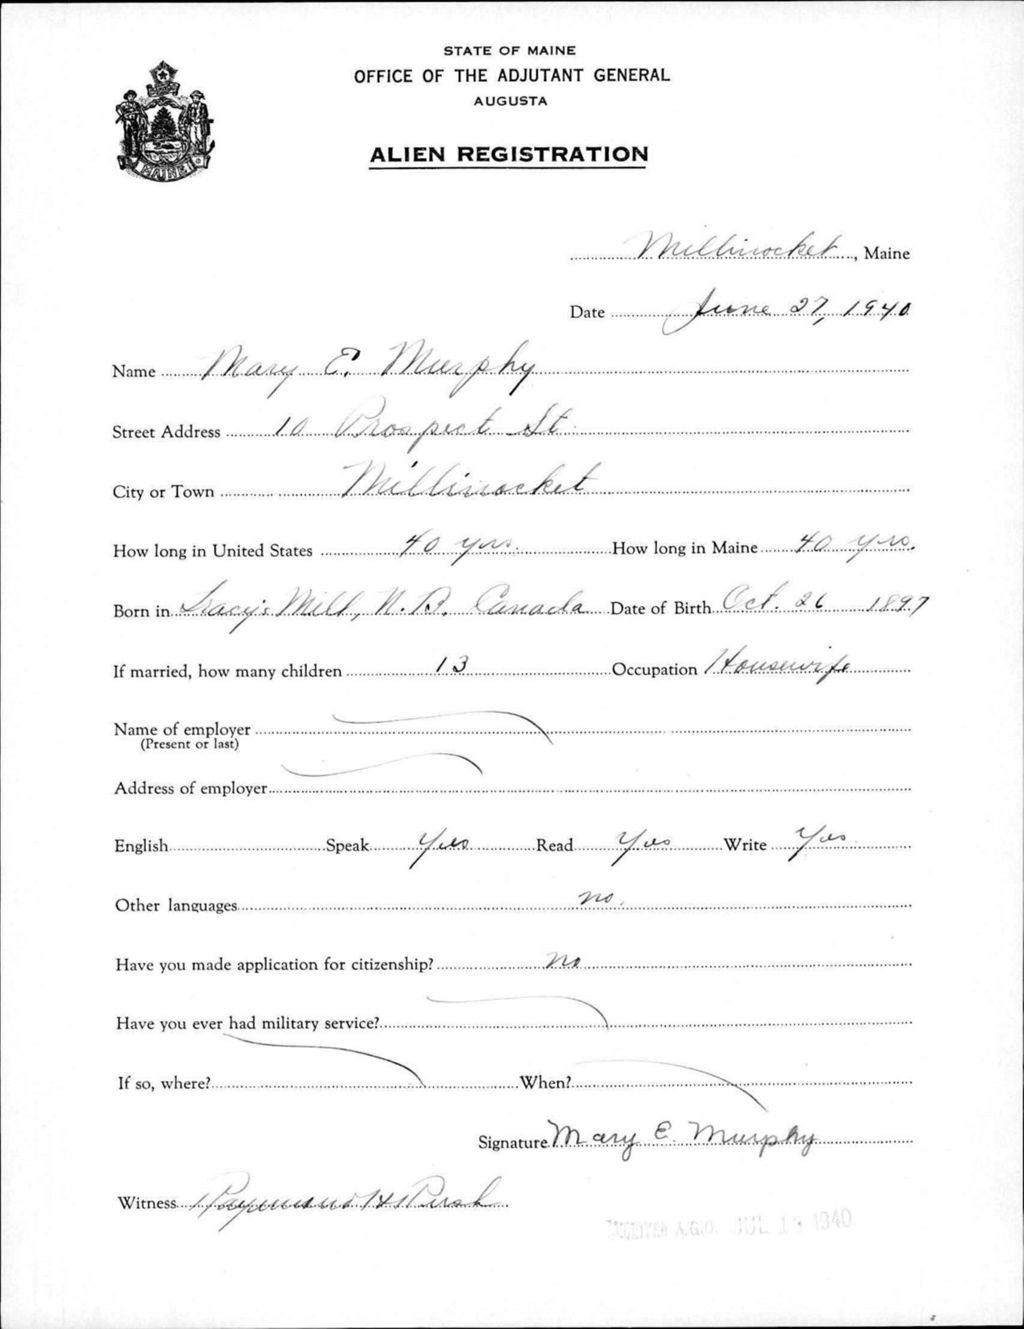 STATE OF MAINE
OFFICE OF THE ADJUTANT GENERAL
AUGUSTA
ALIEN REGISTRATION
MAINE
Millinocket, Maine
Date June 27, 1940
Name Mary E. Murphy
Street Address 10 Prospect St.
City or Town Millinocket
How long in United States 40 yrs. How long in Maine 40 yrs.
Born in Tracy's Mill, N.B. Canada Date of Birth Oct. 26 1897
If married, how many children 13 Occupation Housewife
Name of employer
(Present or last)
Address of employer
English Speak Yes Read Yes Write Yes
Other languages no.
Have you made application for citizenship? No
Have you ever had military service?
If so, where? When?
Signature Mary E. Murphy
Witness Raymond H.
A.G.O. JUL 1940